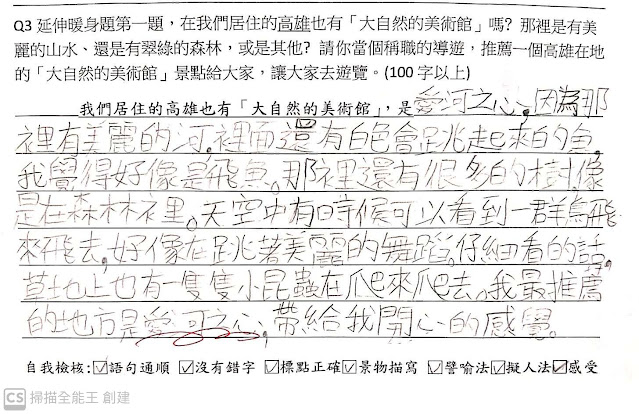 Q3 延伸暖身題第一題，在我們居住的高雄也有「大自然的美術館」嗎？那裡是有美
麗的山水、還是有翠綠的森林，或是其他？請你當個稱職的導遊，推薦一個高雄在地
的「大自然的美術館」景點給大家，讓大家去遊覽。(100 字以上)
我們居住的高雄也有「大自然的美術館」，是愛河之心。因為那
裡有美麗的河，裡面還有白色會跳起來的魚，
我覺得好像是飛魚。那裡還有很多的樹像
是在森林裡。天空中有時候可以看到一群鳥飛
來飛去，好像在跳著美麗的舞蹈。仔細看的話，
草地上也有一隻隻小昆蟲在爬來爬去。我最推薦
的地方是愛河之心，帶給我開心的感覺。
自我檢核:☑語句通順 ☑沒有錯字 ☑標點正確☑景物描寫 ☑譬喻法☑擬人法☑感受
CS 掃描全能王 創建